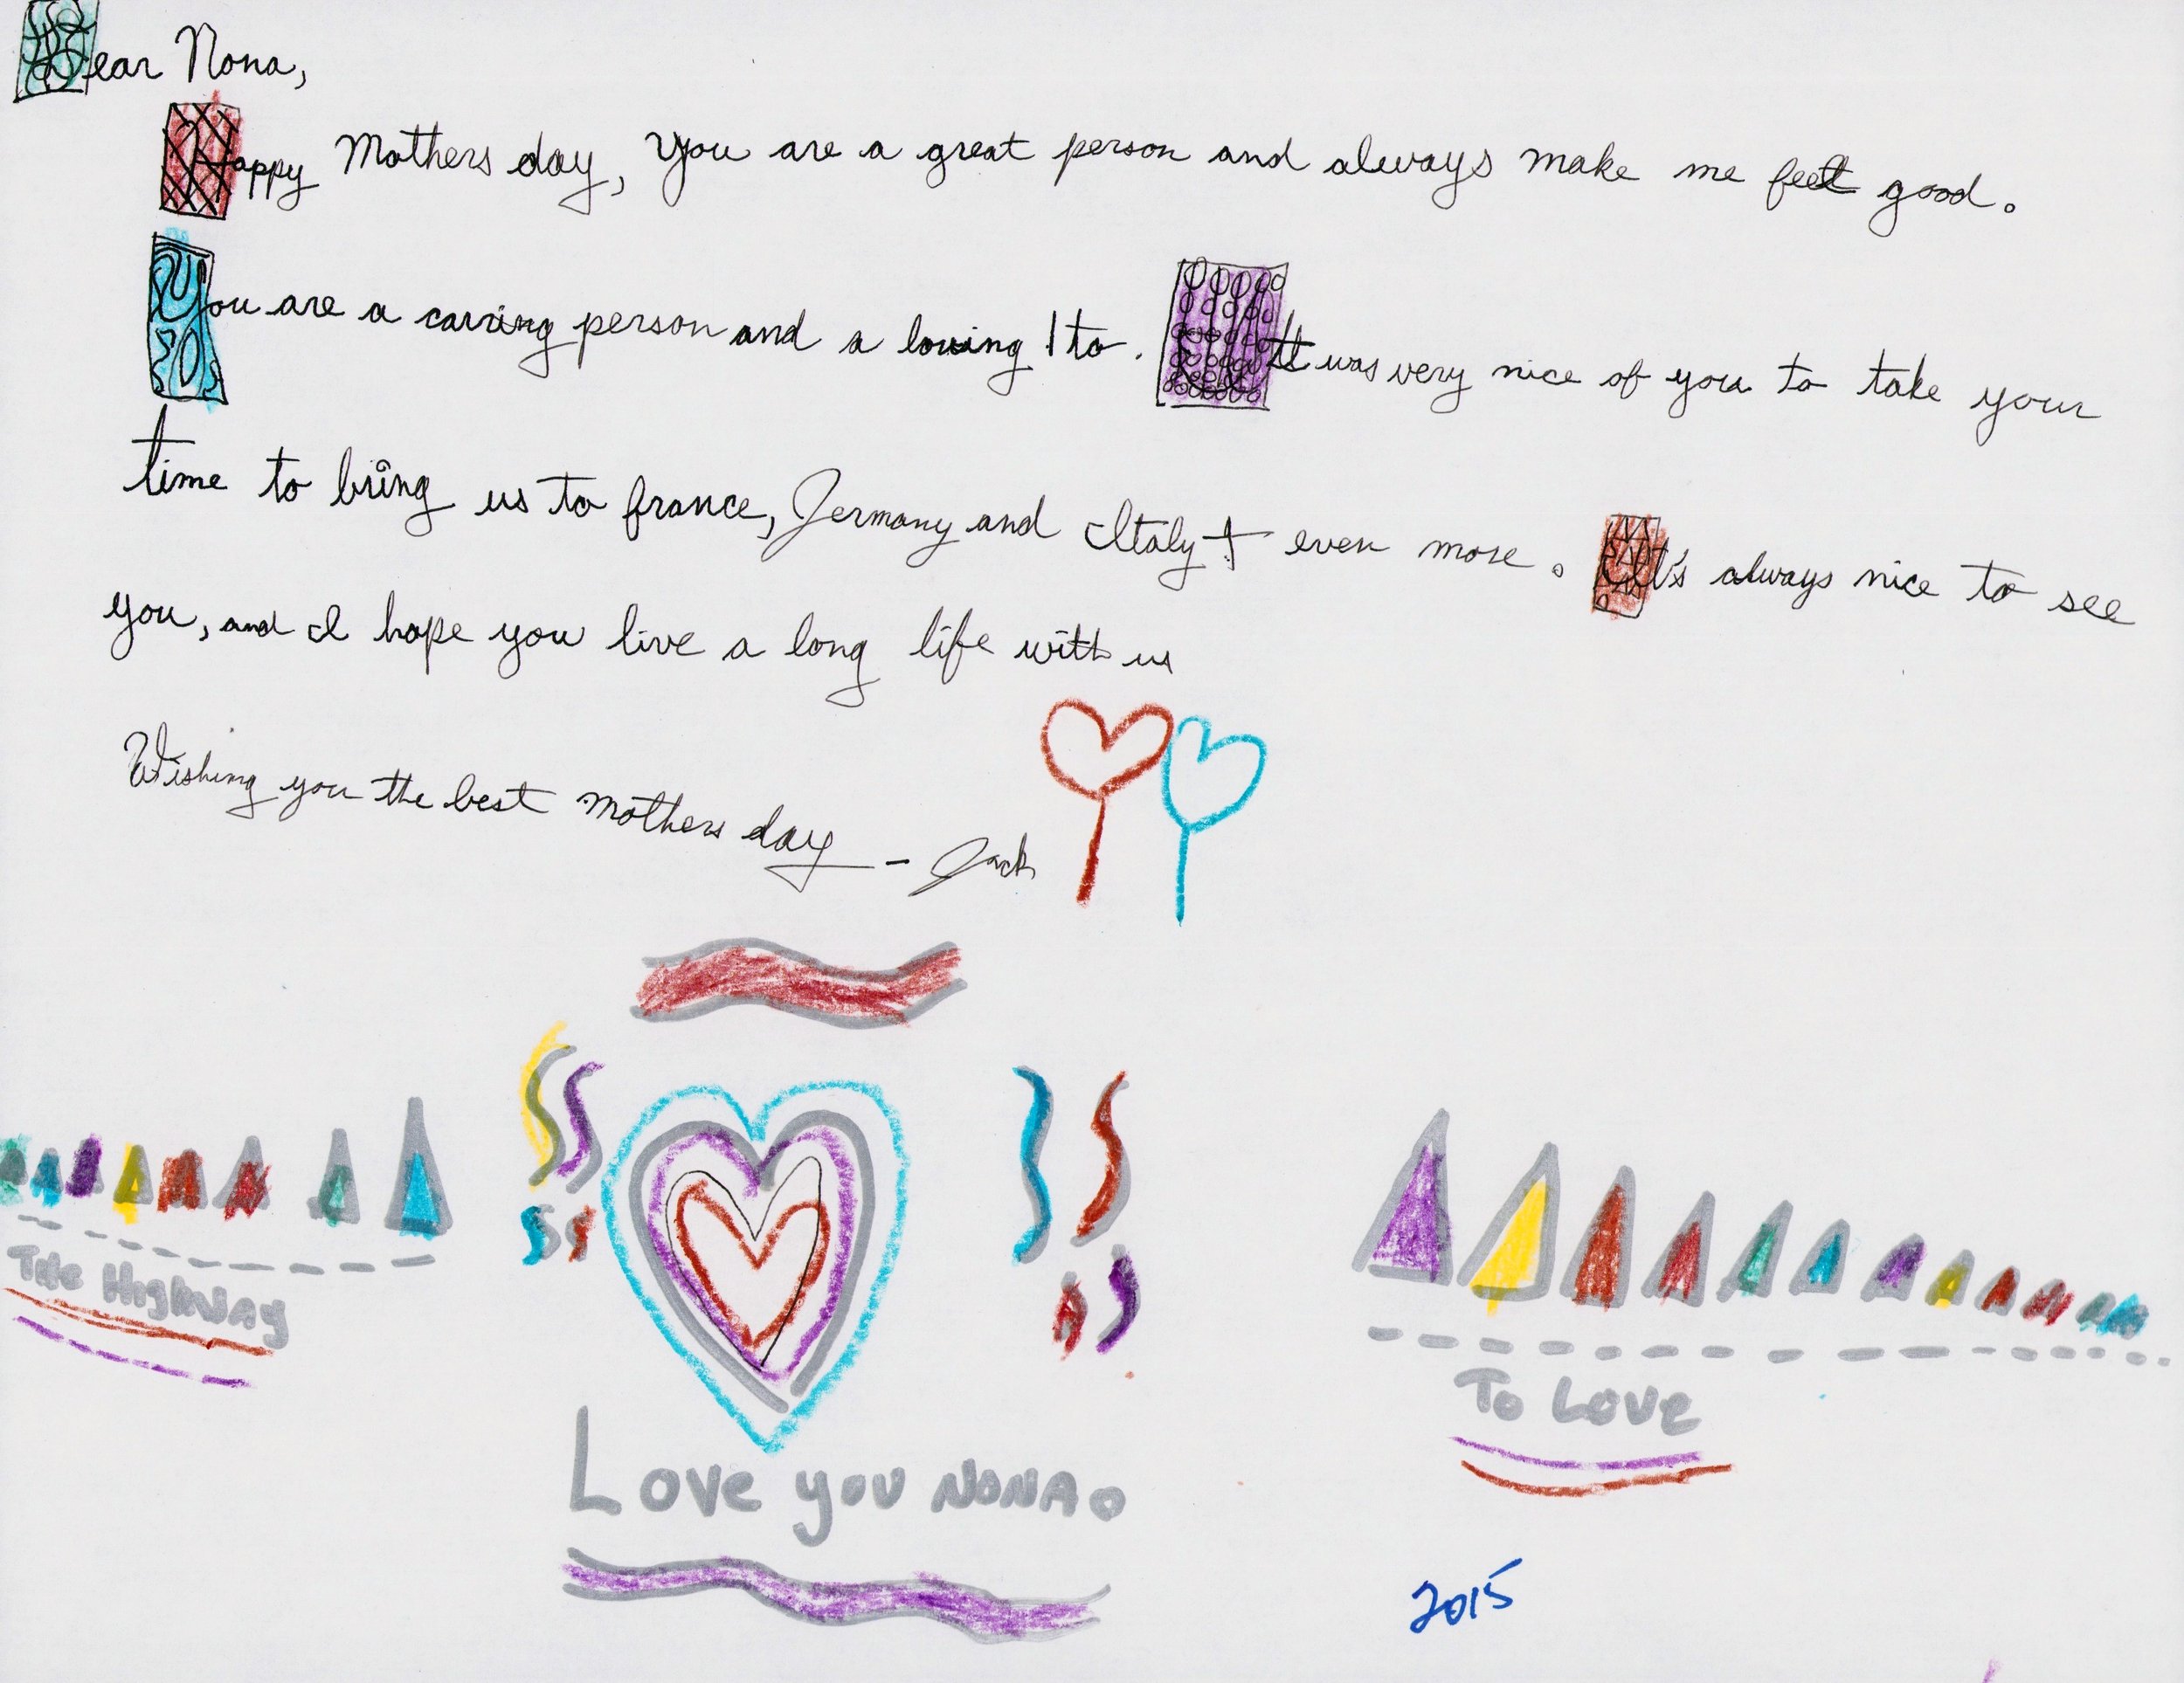 Dear Nona,
Happy Mothers day, You are a great person and always make me feel good.
You are a carring person and a loving 1 to. It was very nice of you to take your
time to bring us to france, Jermany and Italy + even more. It's always nice to see
you, and I hope you live a long life with us
Wishing you the best mothers day - Jack
The Highway
To Love
Love you NONA.
2015